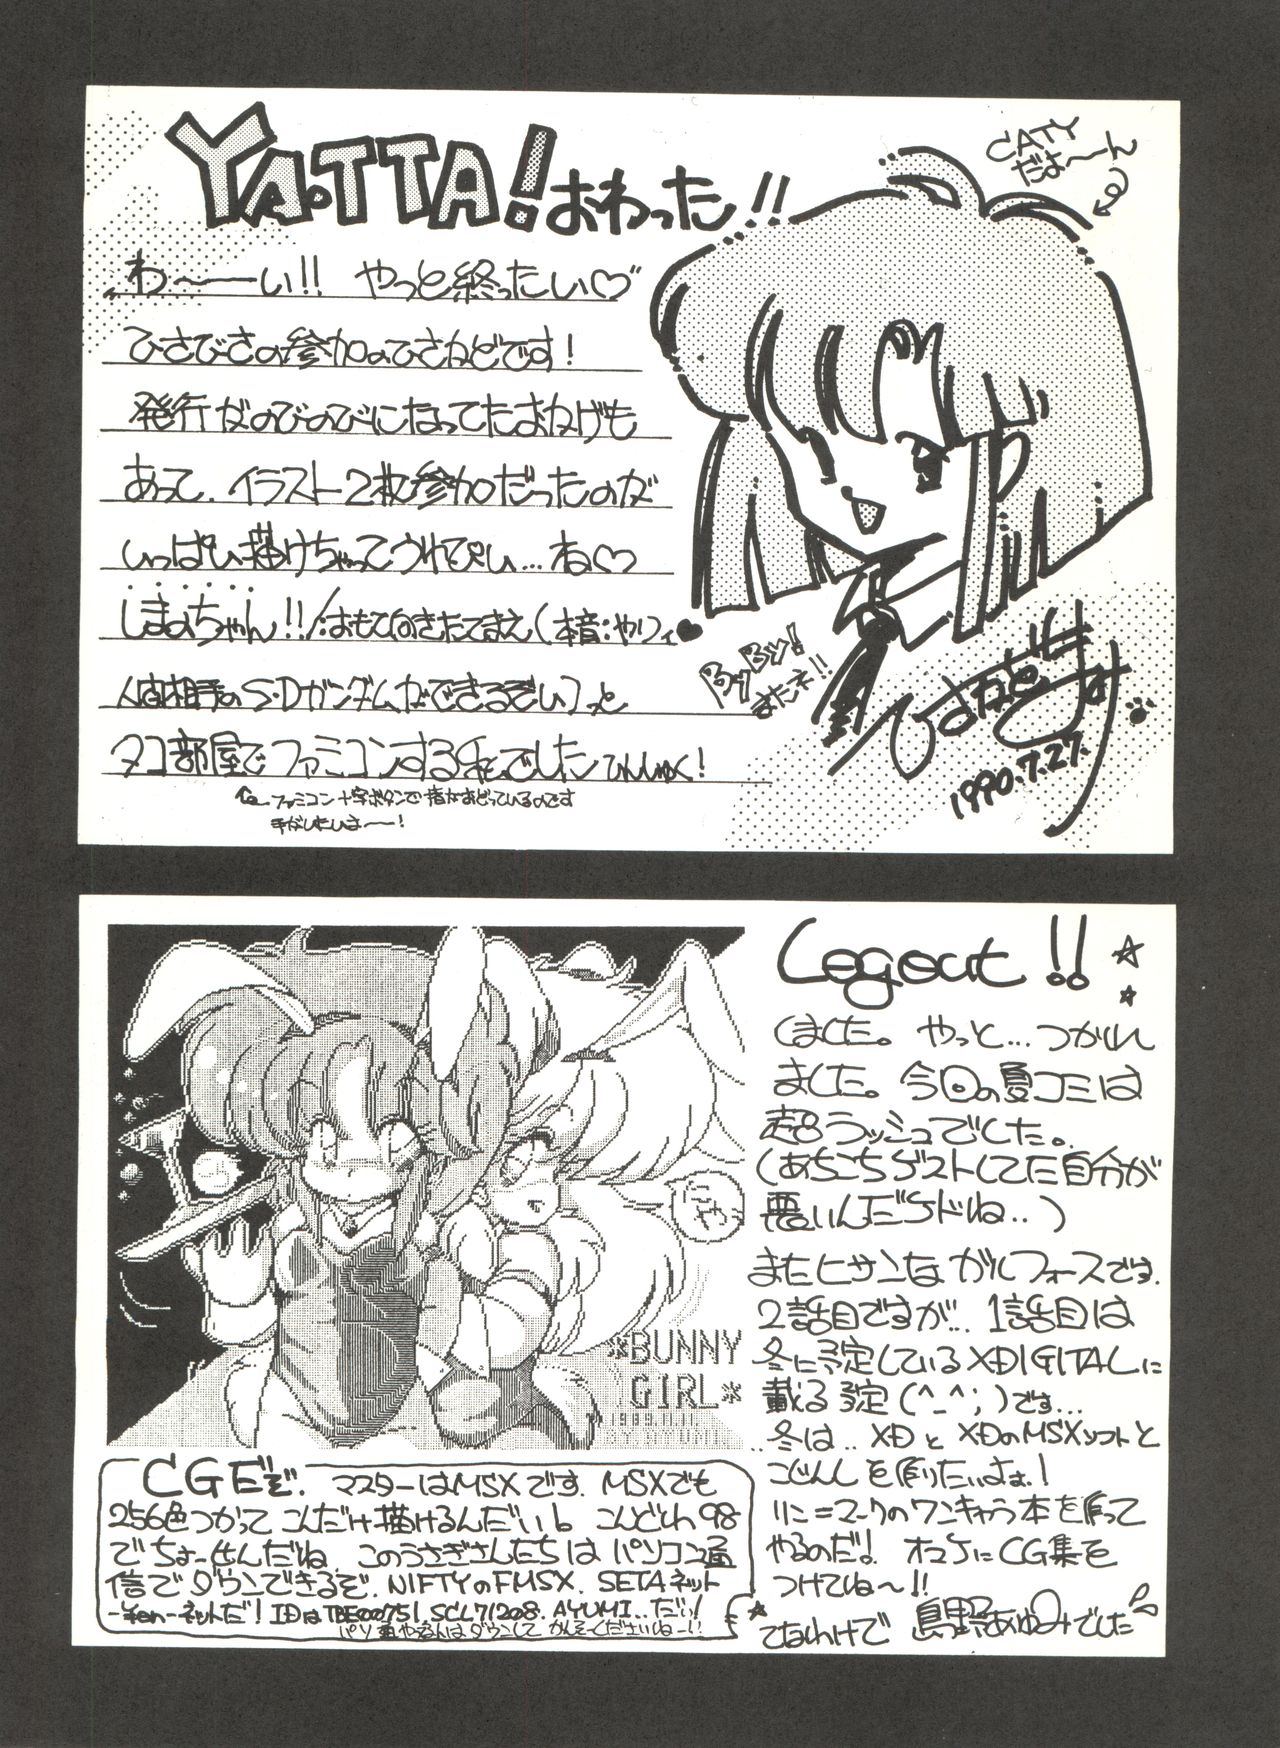 YA.TTA! おわった!!
CATY
だは〜〜ん
わ〜──い!! やっと終ったい♡
ひさびさの参加のひさかどです!
発行がのびのびになってたおかげも
あって、イラスト2枚参加だったのが
いっぱい描けちゃってうれぴい…ね♡
しまのちゃん!!
人間相手のS・Dガンダムができるぞい)っと
タコ部屋でファミコンする私でした ひんしゅく!
ファミコン十字ボタンで指がおどっているのです
手がいたいよ〜〜!
ByBy!
またネ!!
1990.7.27.
Logout!!
しました。 やっと… つかれ
ました。 今回の夏コミは
超ラッシュでした。
(あちこちゲストしてた自分が
悪いんだケドね‥)
またヒサンな ガルフォースです.
2話目ですが… 1話目は
冬に予定している XDIGITALに
載る予定(^_^;)です…
‥冬は‥ XDと XDのMSXソフトと
こじんしを作りたいよぉ!
リン=マークのワンキャラ本を作って
やるのだ! オマケにCG集を
つけてね〜!!
てなわけで 島野あゆみでした
*BUNNY
GIRL*
1989.11.11.
BY.AYUMI.
CGだぞ. マスターはMSXです. MSXでも
256色つかって こんだけ描けるんだいっ。 こんどわ98
でちょーせんだね. このうさぎさんたちは パソコン通
信でダウンできるぞ. NIFTYのFMSX. SETAネット
ネットだ! IDは TBE00751. SCL71208. AYUMI‥だい!